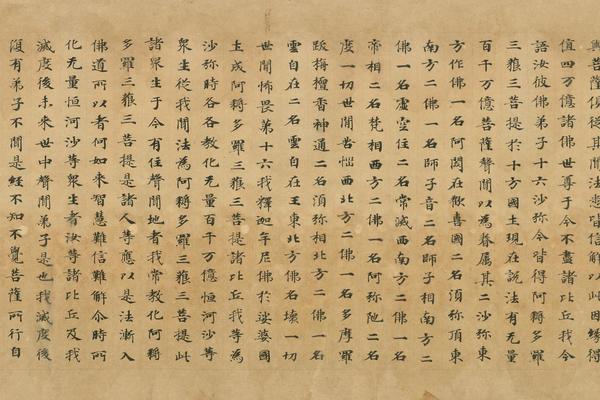 與菩薩俱從其聞法悉皆信解以此因緣得
值四万億諸佛世尊于今不盡諸比丘我今
語汝彼佛弟子十六沙弥今皆得阿耨多羅
三藐三菩提於十方國土現在說法有无量
百千万億菩薩聲聞以為眷属其二沙弥東
方作佛一名阿閦在歡喜國二名須弥頂東
南方二佛一名師子音二名師子相南方二
佛一名虛空住二名常滅西南方二佛一名
帝相二名梵相西方二佛一名阿弥陁二名
度一切世間苦惱西北方二佛一名多摩羅
跋栴檀香神通二名須弥相北方二佛一名
雲自在二名雲自在王東北方佛名壞一切
世間怖畏第十六我釋迦牟尼佛於娑婆國
土成阿耨多羅三藐三菩提諸比丘我等為
沙弥時各各教化无量百千万億恒河沙等
衆生從我聞法為阿耨多羅三藐三菩提此
諸衆生于今有住聲聞地者我常教化阿耨
多羅三藐三菩提是諸人等應以是法漸入
佛道所以者何如来智慧難信難解尒時所
化无量恒河沙等衆生者汝等諸比丘及我
滅度後未来世中聲聞弟子是也我滅度後
復有弟子不聞是經不知不覺菩薩所行自